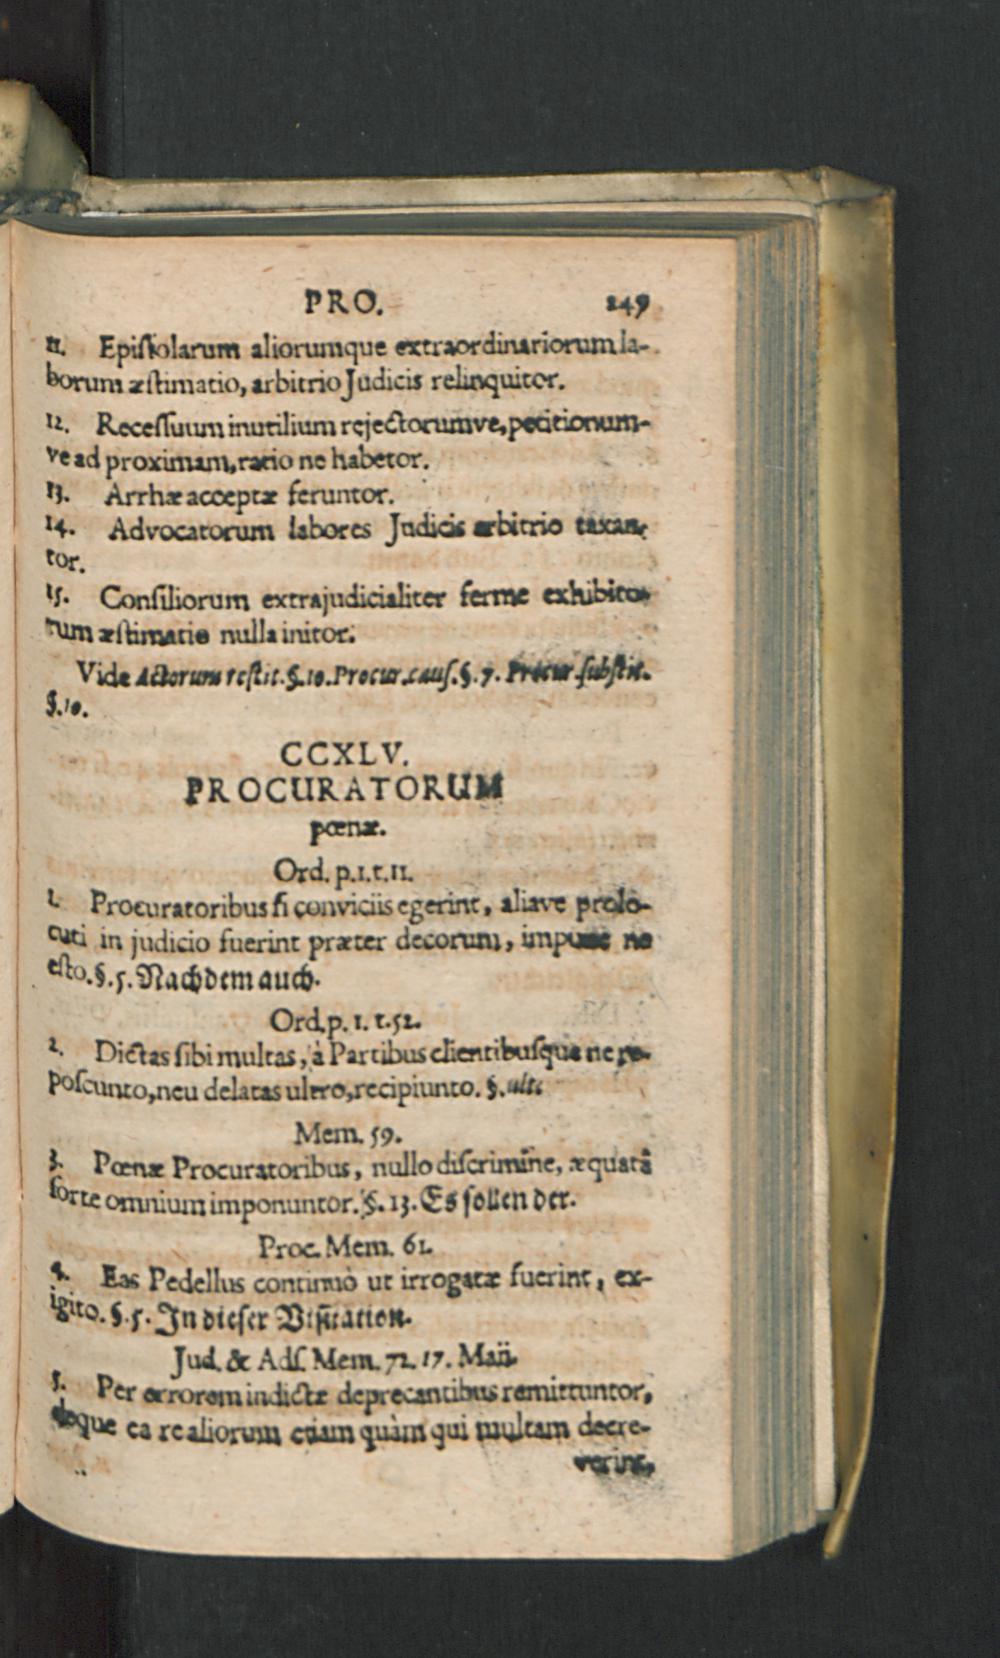 PRO. 249
11. Epiſtolarum aliorumque extraordinariorum la-
borum æſtimatio, arbitrio Judicis relinquitor.
12. Receſſuum inutilium rejectorumve, petitionum-
ve ad proximam, ratio ne habetor.
13. Arrhæ acceptæ feruntor.
14. Advocatorum labores Judicis arbitrio taxan-
tor.
15. Conſiliorum extrajudicialiter ferme exhibito-
rum æſtimatio nulla initor.
Vide Actorum reſtit. §. 10. Procur. cauſ. §. 7. Procur. ſubſtit.
§. 10.
CCXLV.
PROCURATORUM
pœnæ.
Ord. p. 1. t. 11.
1. Procuratoribus ſi conviciis egerint, aliave prolo-
cuti in judicio fuerint præter decorum, impune ne
eſto. §. 5. Nachdem auch.
Ord. p. 1. t. 52.
2. Dictas ſibi multas, à Partibus clientibuſque ne re-
poſcunto, neu delatas ultro, recipiunto. §. ult.
Mem. 59.
3. Pœnæ Procuratoribus, nullo diſcrimine, æquatâ
ſorte omnium imponuntor. §. 13. Es ſollen der.
Proc. Mem. 61.
4. Eas Pedellus continuò ut irrogatæ fuerint, ex-
igito. §. 5. In dieſer Viſitation.
Jud. & Adſ. Mem. 72. 17. Maii.
5. Per errorem indictæ deprecantibus remittuntor,
deque ea re aliorum etiam quàm qui multam decre-
verint,